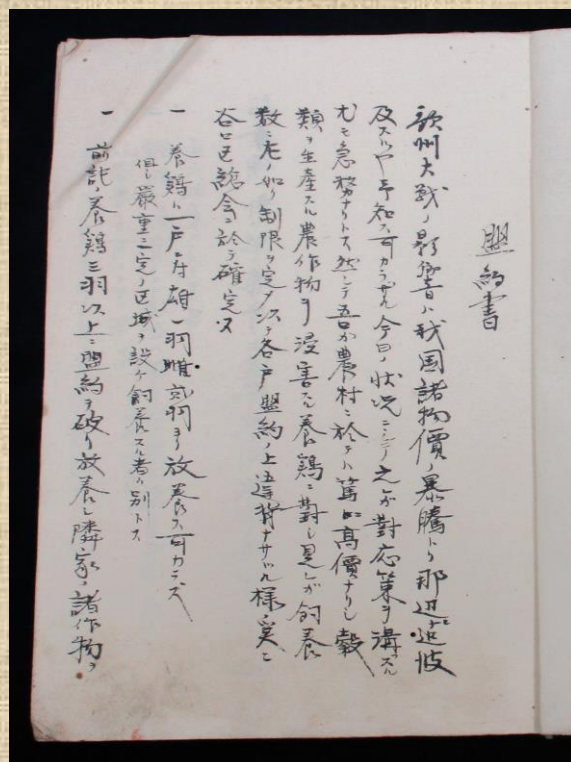 盟約書
欧州大戦ノ影響ハ我国諸物價ノ暴騰トナリ那辺ニ迄波
及スルヤ予知ス可カラザル今日ノ状況ニシテ之ガ對応策ヲ講スル
尤モ急務ナリトス然シテ吾が農村ニ於テハ斯如高價ナリシ穀
類ヲ生産スル農作物ヲ浸害スル養鶏ニ對シ是レガ飼養
数ニ左ノ如ク制限ヲ定メ以テ各戸盟約ノ上違背ナサヾル様冀ニ
谷口区総会ニ於テ確定ス
一 養鶏ハ一戸ニ付雄一羽雌弐羽ヨリ放養ス可カラズ
但シ厳重ニ一定ノ区域ヲ設ケ飼養スル者ハ別トス
一 前記ノ養鶏三羽以上ニ盟約ヲ破リ放養シ隣家ノ諸作物ヲ